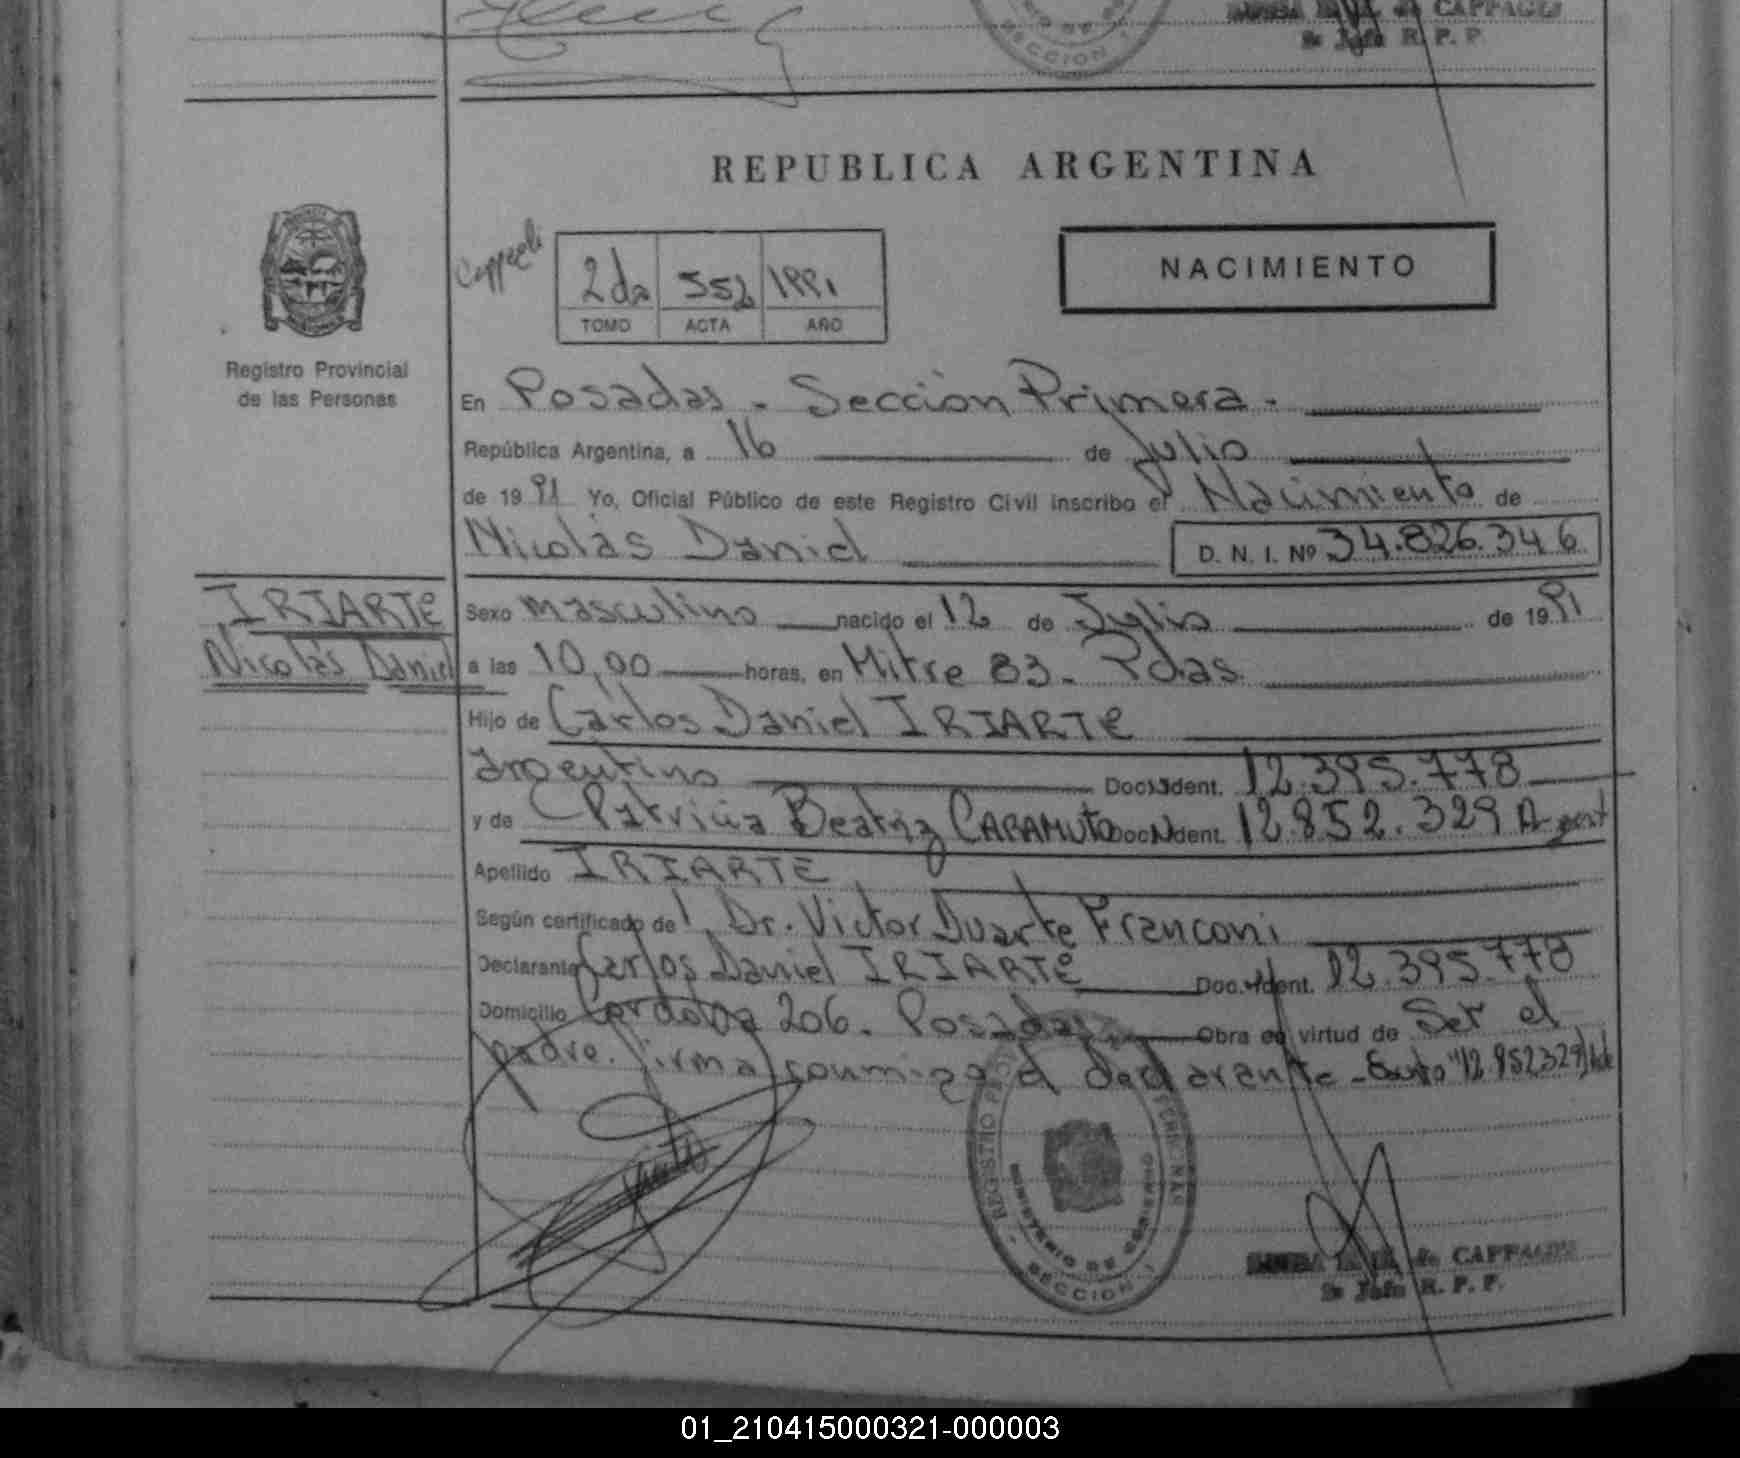 de CAPPAGLI
R. P. P.
SECCION 1
REPUBLICA ARGENTINA
Cappagli
2da 552 1991
TOMO ACTA AÑO
NACIMIENTO
Registro Provincial
de las Personas
En Posadas - Sección Primera -
República Argentina, a 16 de Julio
de 1991 Yo, Oficial Público de este Registro Civil inscribo el Nacimiento de
Nicolás Daniel D. N. I. Nº 34.826.346
IRIARTE
Nicolás Daniel
Sexo masculino nacido el 12 de Julio de 1991
a las 10,00 horas, en Mitre 83 - Pdas.
Hijo de Carlos Daniel IRIARTE
argentino Doc. Ident. 12.395.778
y de Patricia Beatriz CARAMUTO Doc. Ident. 12.852.329 Argent
Apellido IRIARTE
Según certificado del Dr. Victor Duarte Franconi
Declarante Carlos Daniel IRIARTE Doc. Ident. 12.395.778
Domicilio Cordoba 206. Posadas Obra en virtud de Ser el
padre. firma conmigo el declarante -
REGISTRO PERSONAS
MINISTERIO DE GOBIERNO
SECCION 1
de CAPPAGLI
R. P. P.
01_210415000321-000003